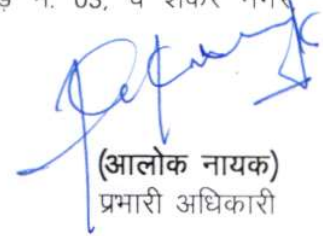 नं. 03, शंकर नगर
(आलोक नायक)
प्रभारी अधिकारी